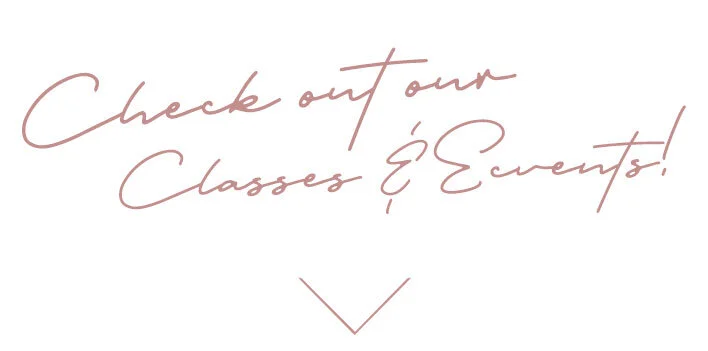 Check out our
Classes & Ecvents!